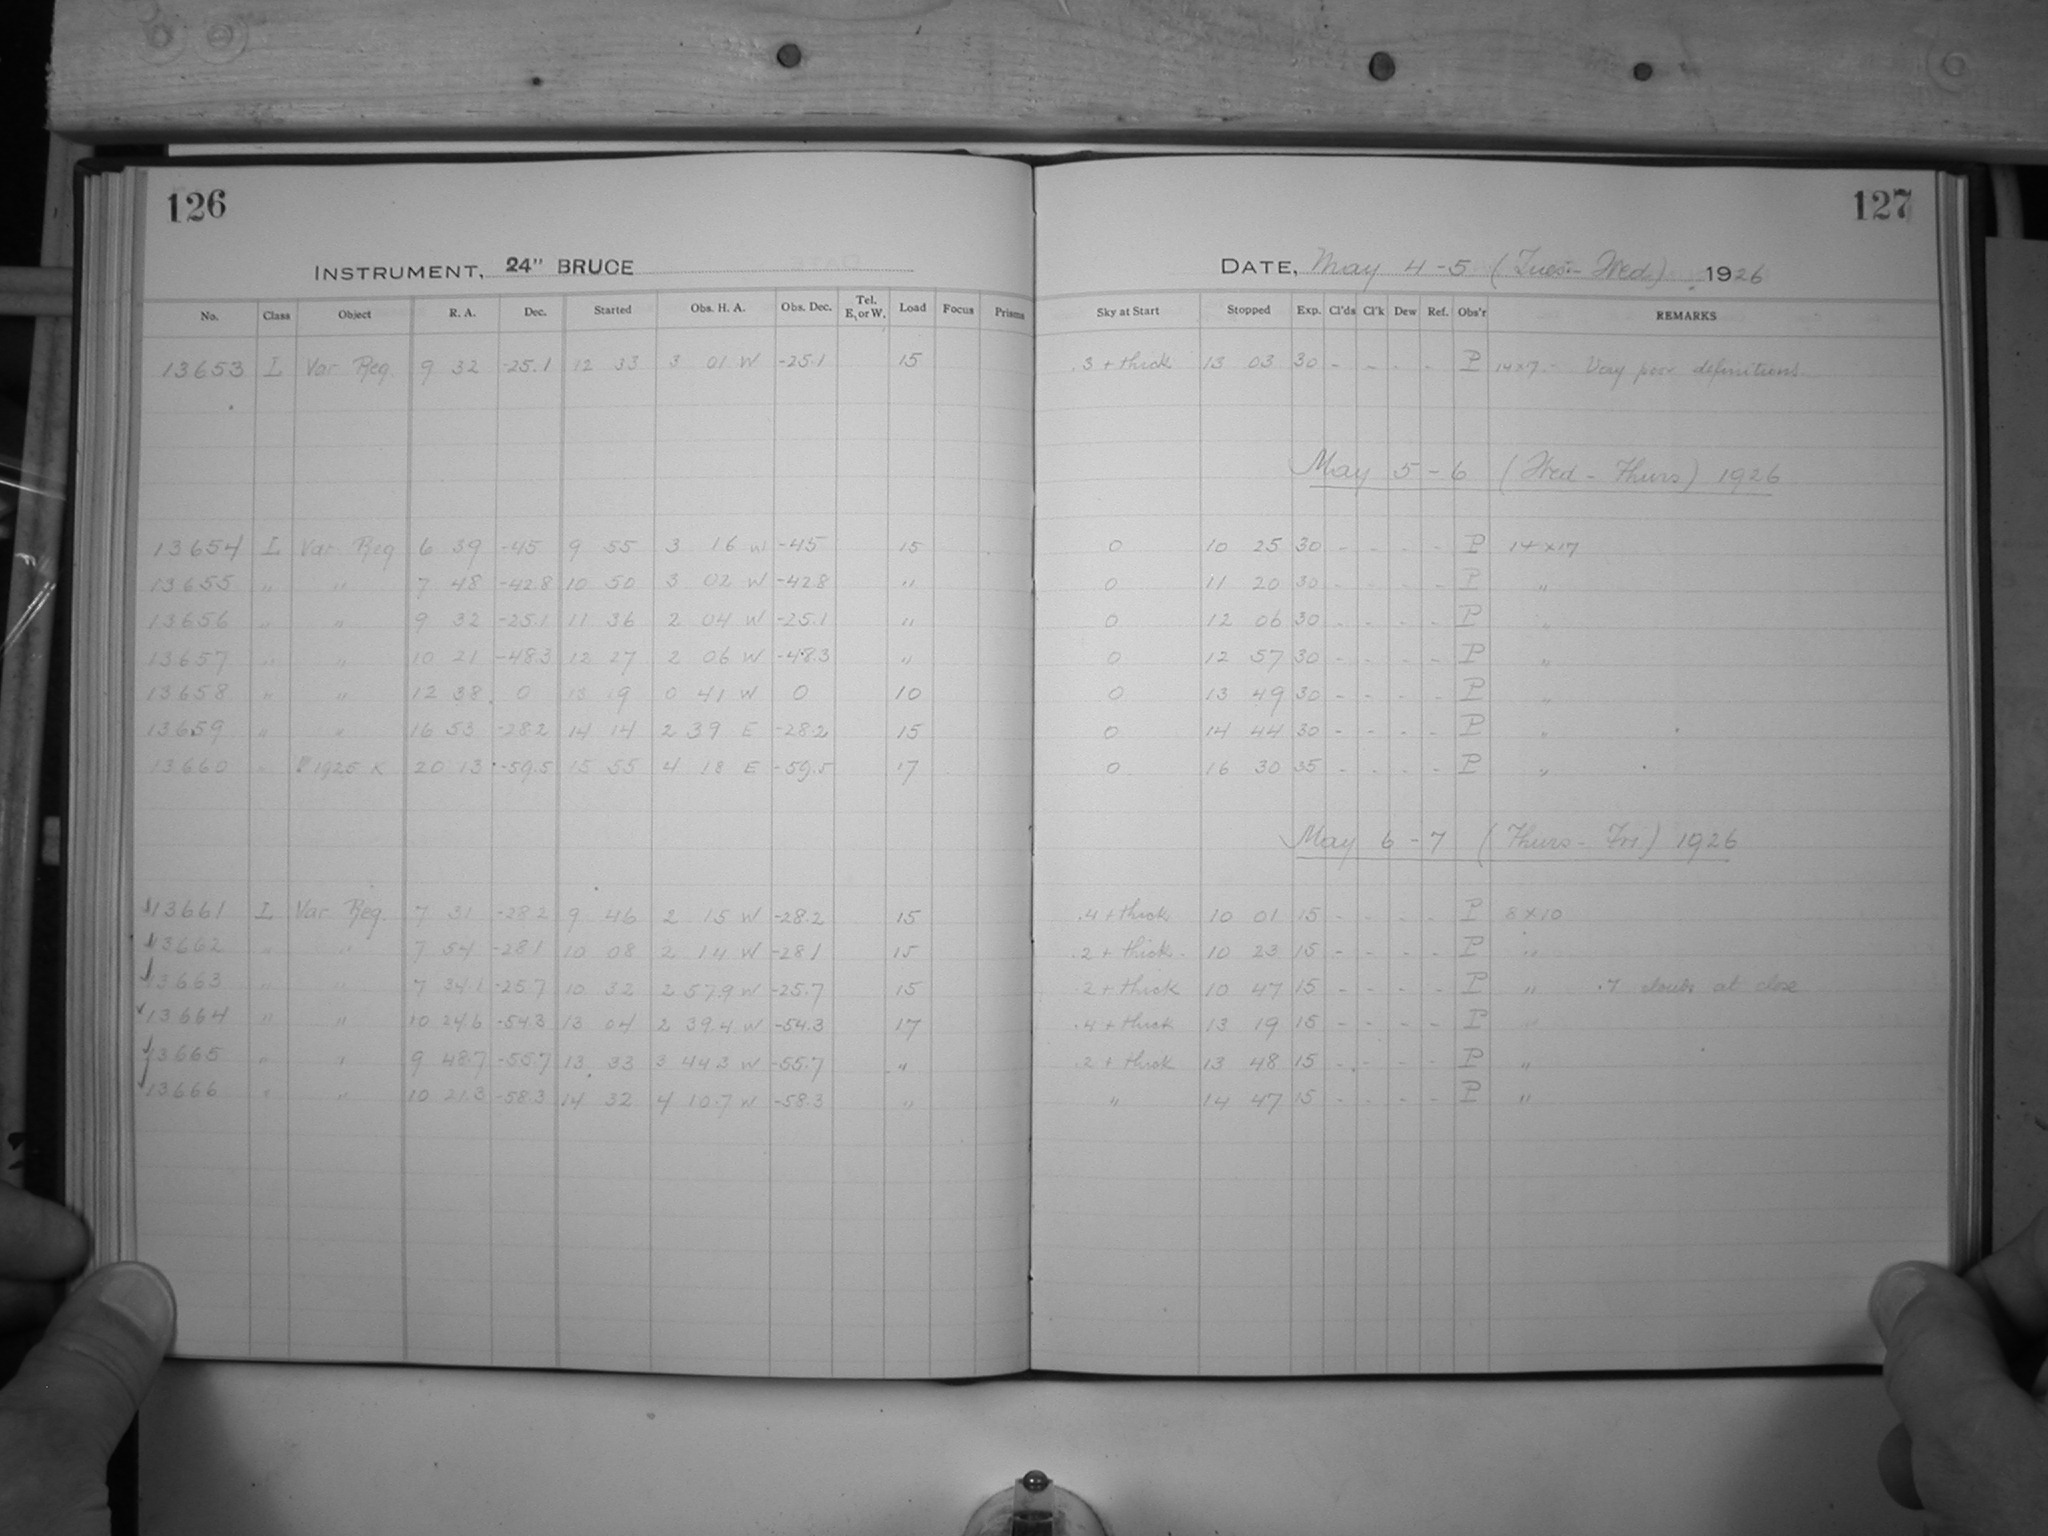 126
127
INSTRUMENT, 24" BRUCE
DATE, May 4-5 (Tues.- Wed) 1926
No. Class Object R. A. Dec. Started Obs. H. A. Obs. Dec. Tel. E. or W. Load Focus Prisms Sky at Start Stopped Exp. Cl'ds Cl'k Dew Ref. Obs'r REMARKS
13653 L Var Reg. 9 32 -25.1 12 33 3 01 W -25.1 15 .3 + thick 13 03 30 - - - - P 14x7 - Very poor definitions
May 5-6 (Wed - Thurs) 1926
13654 L Var Reg 6 39 -45 9 55 3 16 W -45 15 0 10 25 30 - - - - P 14x17
13655 " " 7 48 -42.8 10 50 3 02 W -42.8 " 0 11 20 30 - - - - P "
13656 " " 9 32 -25.1 11 36 2 04 W -25.1 " 0 12 06 30 - - - - P "
13657 " " 10 21 -48.3 12 27 2 06 W -48.3 " 0 12 57 30 - - - - P "
13658 " " 12 38 0 13 19 0 41 W 0 10 0 13 49 30 - - - - P "
13659 " " 16 53 -28.2 14 14 2 39 E -28.2 15 0 14 44 30 - - - - P "
13660 " 1925 K 20 13 -59.5 15 55 4 18 E -59.5 17 0 16 30 35 - - - - P "
May 6-7 (Thurs- Fri) 1926
13661 L Var Reg. 7 31 -28.2 9 46 2 15 W -28.2 15 .4 + thick 10 01 15 - - - - P 8x10
13662 " " 7 54 -28.1 10 08 2 14 W -28.1 15 .2 + thick 10 23 15 - - - - P "
13663 " " 7 34.1 -25.7 10 32 2 57.9 W -25.7 15 .2 + thick 10 47 15 - - - - P " .7 clouds at close
13664 " " 10 24.6 -54.3 13 04 2 39.4 W -54.3 17 .4 + thick 13 19 15 - - - - P "
13665 " " 9 48.7 -55.7 13 33 3 44.3 W -55.7 " .2 + thick 13 48 15 - - - - P "
13666 " " 10 21.3 -58.3 14 32 4 10.7 W -58.3 " " 14 47 15 - - - - P "